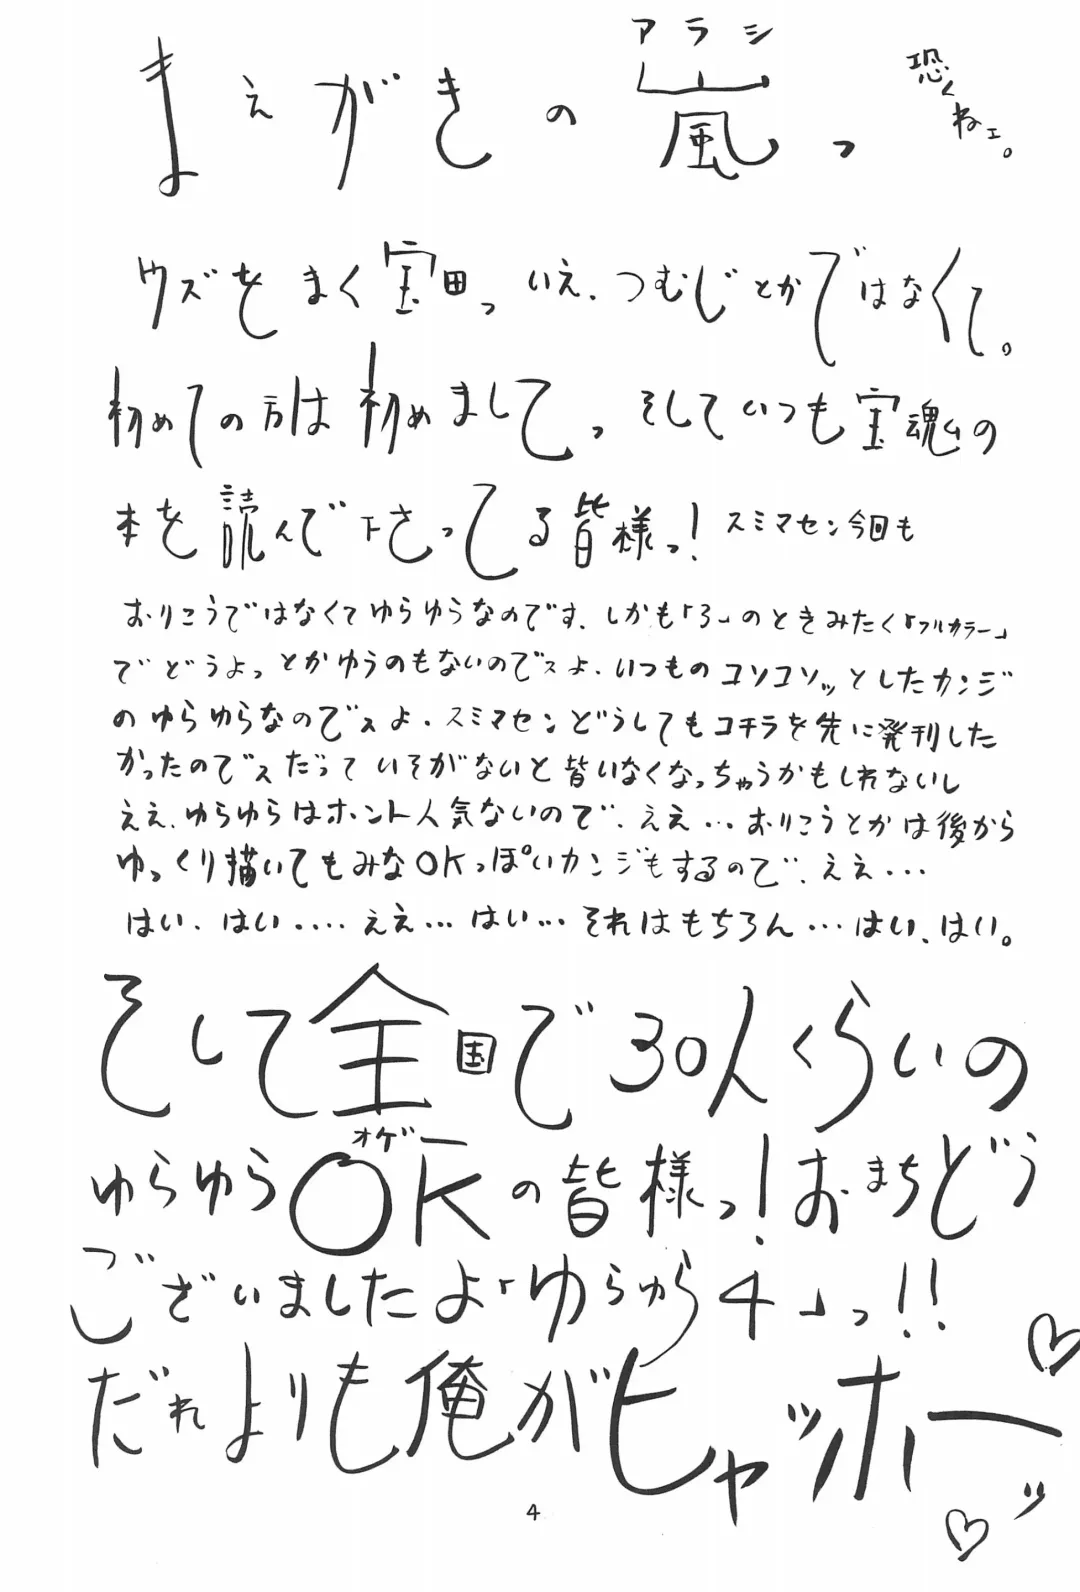 アラシ
まえがきの嵐っ 恐くねェ。
ウズをまく宝田っ いえ、つむじとかではなくて。
初めての方は初めまして。そしていつも宝魂の
本を読んで下さってる皆様っ! スミマセン今回も
おりこうではなくてゆらゆらなのです、しかも「3」のときみたく「フルカラー」
でどうよっとかゆうのもないのでスよ、いつものコソコソッとしたカンジ
のゆらゆらなのでスよ、スミマセンどうしてもコチラを先に発刊した
かったのでスだっていそがないと皆いなくなっちゃうかもしれないし
ええ、ゆらゆらはホント人気ないので、ええ…おりこうとかは後から
ゆっくり描いてもみなOKっぽいカンジもするので、ええ…
はい、はい‥‥ええ…はい…それはもちろん…はい、はい。
そして全国で30人くらいの
オゲー
ゆらゆらOKの皆様っ!おまちどう
ございましたよ「ゆらゆら4」っ!!
だれよりも俺がヒャッホーッ
4